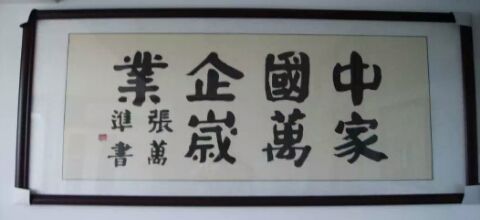 中國企業
家萬嵗
張萬
準書